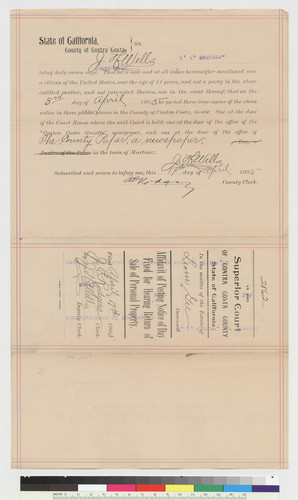 State of California,
County of Contra Costa } ss.
J. R. Wells
being duly sworn says: That he is and at all times hereafter mentioned was
a citizen of the United States, over the age of 21 years, and not a party to the above
entitled matter, and not interested therein, nor in the event thereof; that on the
3rd day of April 1905 he posted three true copies of the above
notice in three public places in the County of Contra Costa, to-wit: One at the door
of the Court House where the said Court is held, one at the door of the office of the
"Contra Costa Gazette" newspaper, and one at the door of the office of
The County Paper, a newspaper,
in the town of Martinez.
J. R. Wells
Subscribed and sworn to before me, this day of April 1905
County Clerk.
2162
Superior Court
OF CONTRA COSTA COUNTY
State of California
In the matter of the Estate of
Deceased
Affidavit of Posting Notice of Day
Fixed for Hearing Return of
Sale of Personal Property.
Filed April 17th 1905
Clerk
Deputy Clerk.